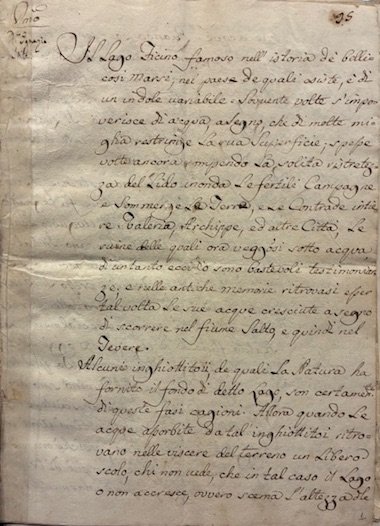 95
Il Lago Fucino famoso nell'istoria de' belli-
cosi Marsi, nei paese de quali siste, è di
un indole variabile. Sovente volte s'impo-
verisce di acqua a segno, che di molte mi-
glia restringe la sua superficie; spesse
volte ancora rompendo la solita ristretez-
za del Lido inonda le fertili Campagne
e Sommerge le Terre, e Le Contrade intie-
re. Valeria, Archippe, ed altre Città, Le
ruine delle quali ora veggosi sotto acqua,
di un tanto eccesso sono bastevoli testimonian-
ze, e nelle antiche memorie ritrovasi esser
tal volta Le sue acque cresciute a segno
di scorrere nel fiume Salto, e quindi nel
Tevere.
Alcuni inghiottitoii, de quali La Natura ha
fornito il fondo di detto Lago, son certamente
di queste fasi cagioni. Allora quando Le
acque assorbite da tal inghiottitoi ritro-
vano nelle viscere del terreno un Libero
scolo, chi non vede, che in tal caso il Lago
o non accresce, ovvero scema l'altezza die